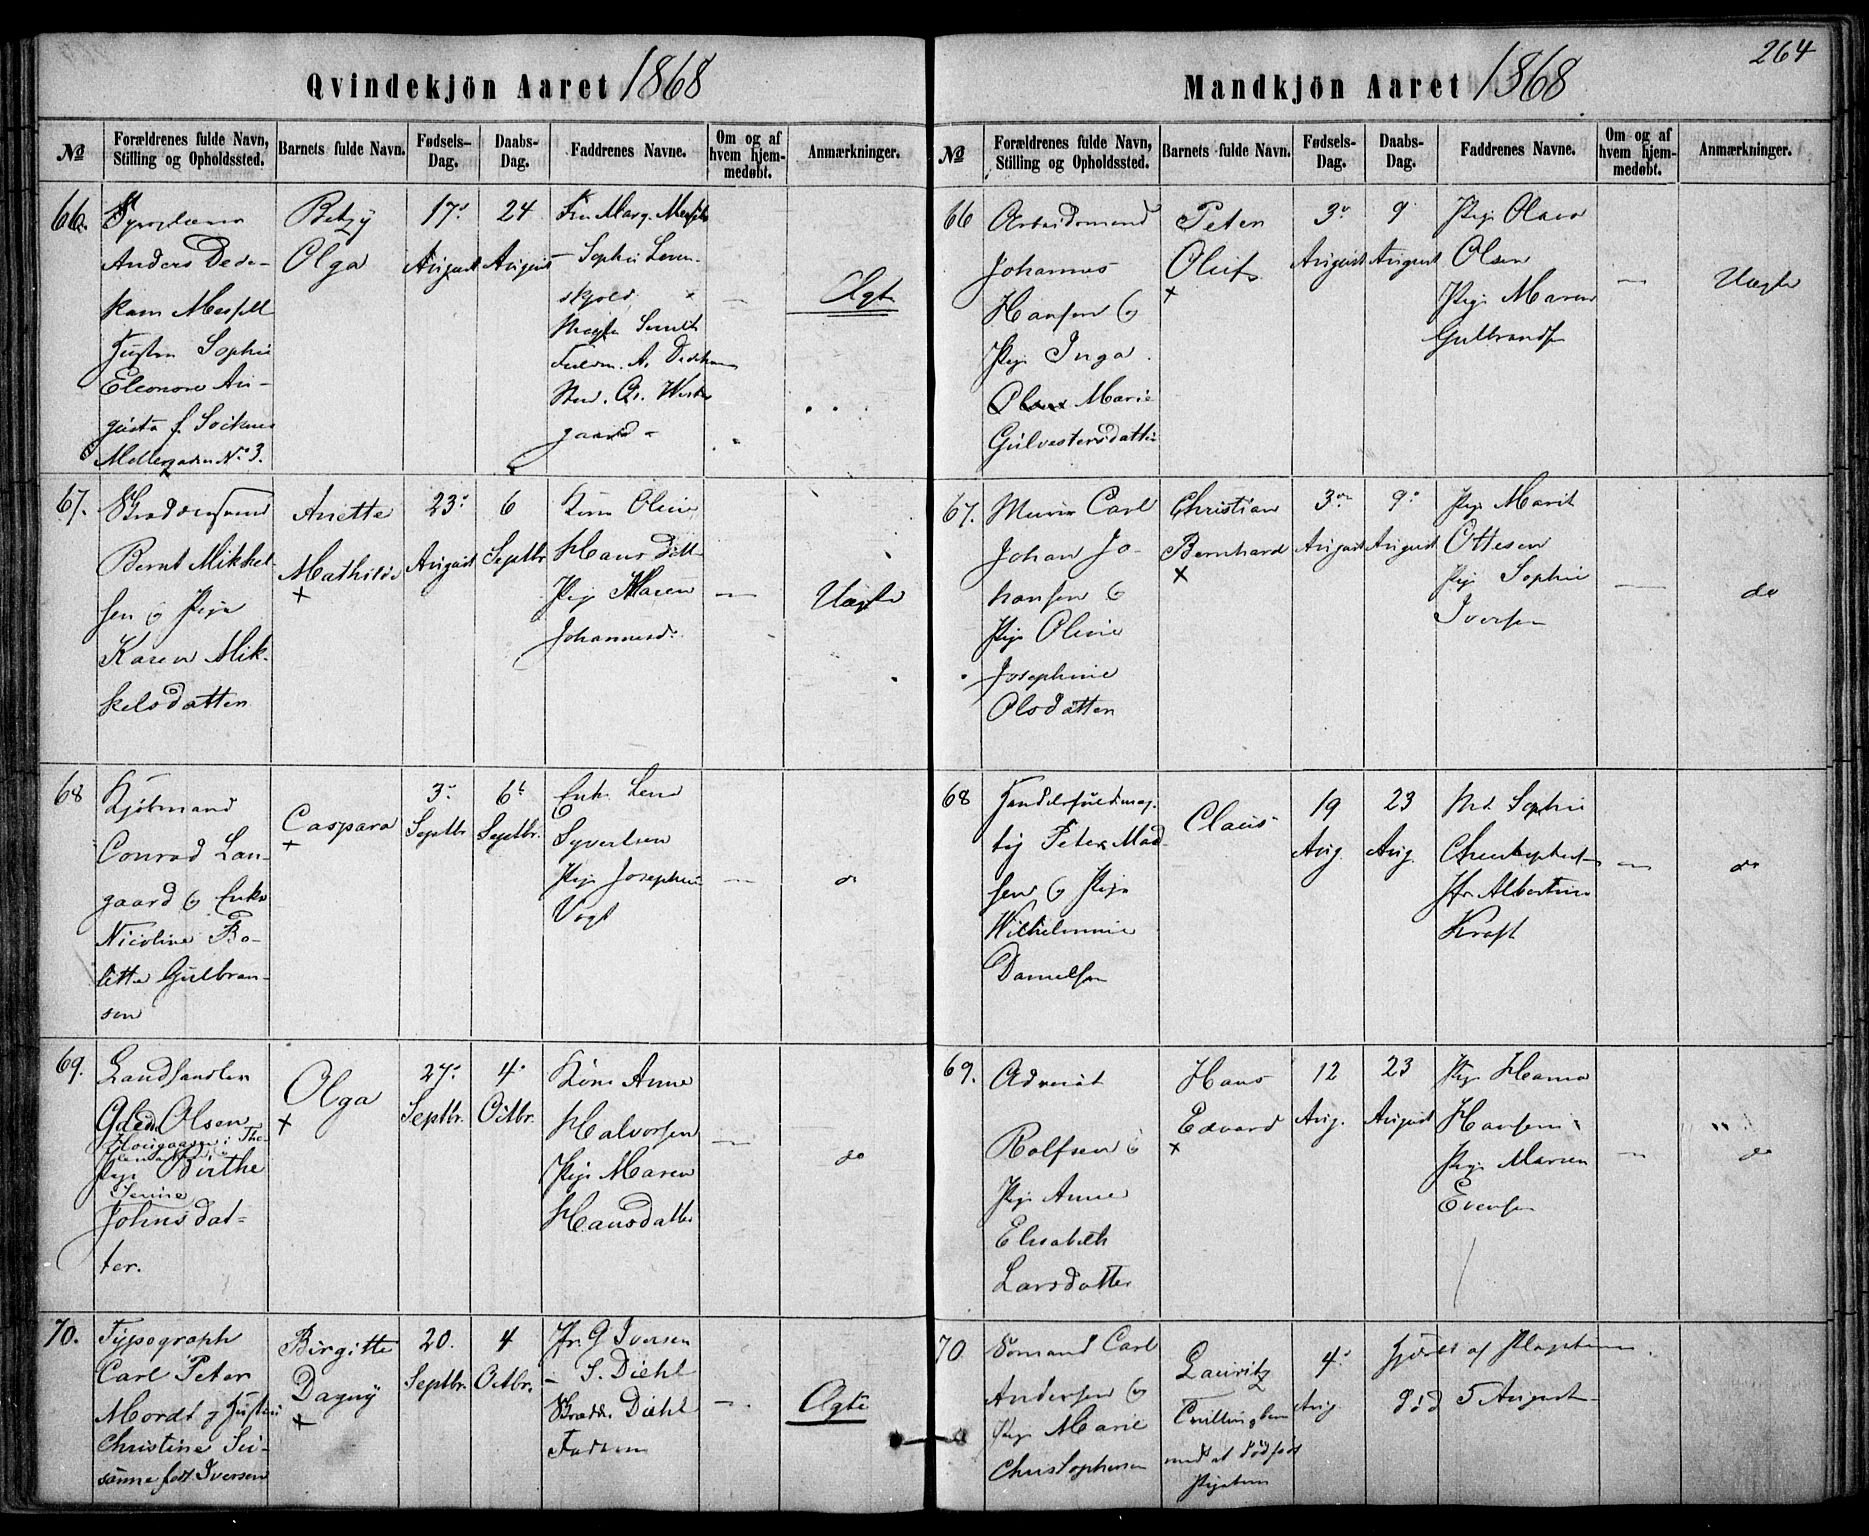 Qvindekjön Aaret 1868
№
Forældrenes fulde Navn, Stilling og Opholdssted.
Barnets fulde Navn.
Fødsels-Dag.
Daabs-Dag.
Faddrenes Navne.
Om og af hvem hjem-medøbt.
Anmærkninger.
66.
Anders Dede-
kam
Hustru Sophie
Eleonore Au-
gusta f.
Møllergaden No 3.
Betzy
Olga
17
August
24
August
Sophie Leven-
skjold
Ægte
67.
Bernt Mikkel-
sen og Pige
Karen Mik-
kelsdatter
Anette
Mathilde
×
23
August
6
Septbr
Kone Oline
Hansdatt-
Pige Maren
Johannesd.
—
Uægte
68
Kjøbmand
Conrad Lan-
gaard og Enke
Nicoline Bo-
lette Gulbran-
sen
Caspara
×
3
Septbr
6
Septbr.
Enke Lena
Syvertsen
Pige Josephine
Vogt
—
do
69.
Landhandler
Olsen
Pige Birthe
Johnsdat-
ter.
Olga
×
27
Septbr.
4
Octbr.
Kone Anne
Halvorsen
Pige Maren
Hansdatter
—
do
70.
Typograph
Carl Peter
Mordt og Hustru
Christine Su-
sanne født Iversen
Birgitte
Dagny
×
20.
Septbr.
4
Octbr.
Fr. G. Iversen
— S. Diehl
Diehl
Faderen
—
Ægte
Mandkjön Aaret 1868
264
№
Forældrenes fulde Navn, Stilling og Opholdssted.
Barnets fulde Navn.
Fødsels-Dag.
Daabs-Dag.
Faddrenes Navne.
Om og af hvem hjem-medøbt.
Anmærkninger.
66
Arbeidsmand
Johannes
Hansen og
Pige Inga
Marie
Gulvestersdatter
Peter
Oluf
×
3
August
9
August
Pige Olava
Olsen
Pige Maren
Gulbrandsen
—
Uægte
67.
Murer Carl
Johan Jo-
hansen og
Pige Oline
Josephine
Olsdatter
Christian
Bernhard
×
3
August
9
August
Pige Marit
Ottesen
Pige Sophie
Iversen
—
do
68
Handelsfuldmæg-
tig Peter Mad-
sen og Pige
Wilhelmine
Danielsen
Claus
19
Aug.
23
Aug.
Md. Sophie
Christophersen
Jfr Albertine
Kraft
—
do
69.
Rolfsen og
Pige Anne
Elisabeth
Larsdatter
Hans
Edvard
×
12
Aug.
23
August
Pige Hanna
Hansen
Pige Maren
Evensen
—
do
70
Sømand Carl
Andersen og
Pige Marie
Christophersen
Lauritz
Tvillingbarn
med et dødfødt
Pigebarn
4
Aug.
død 5 August